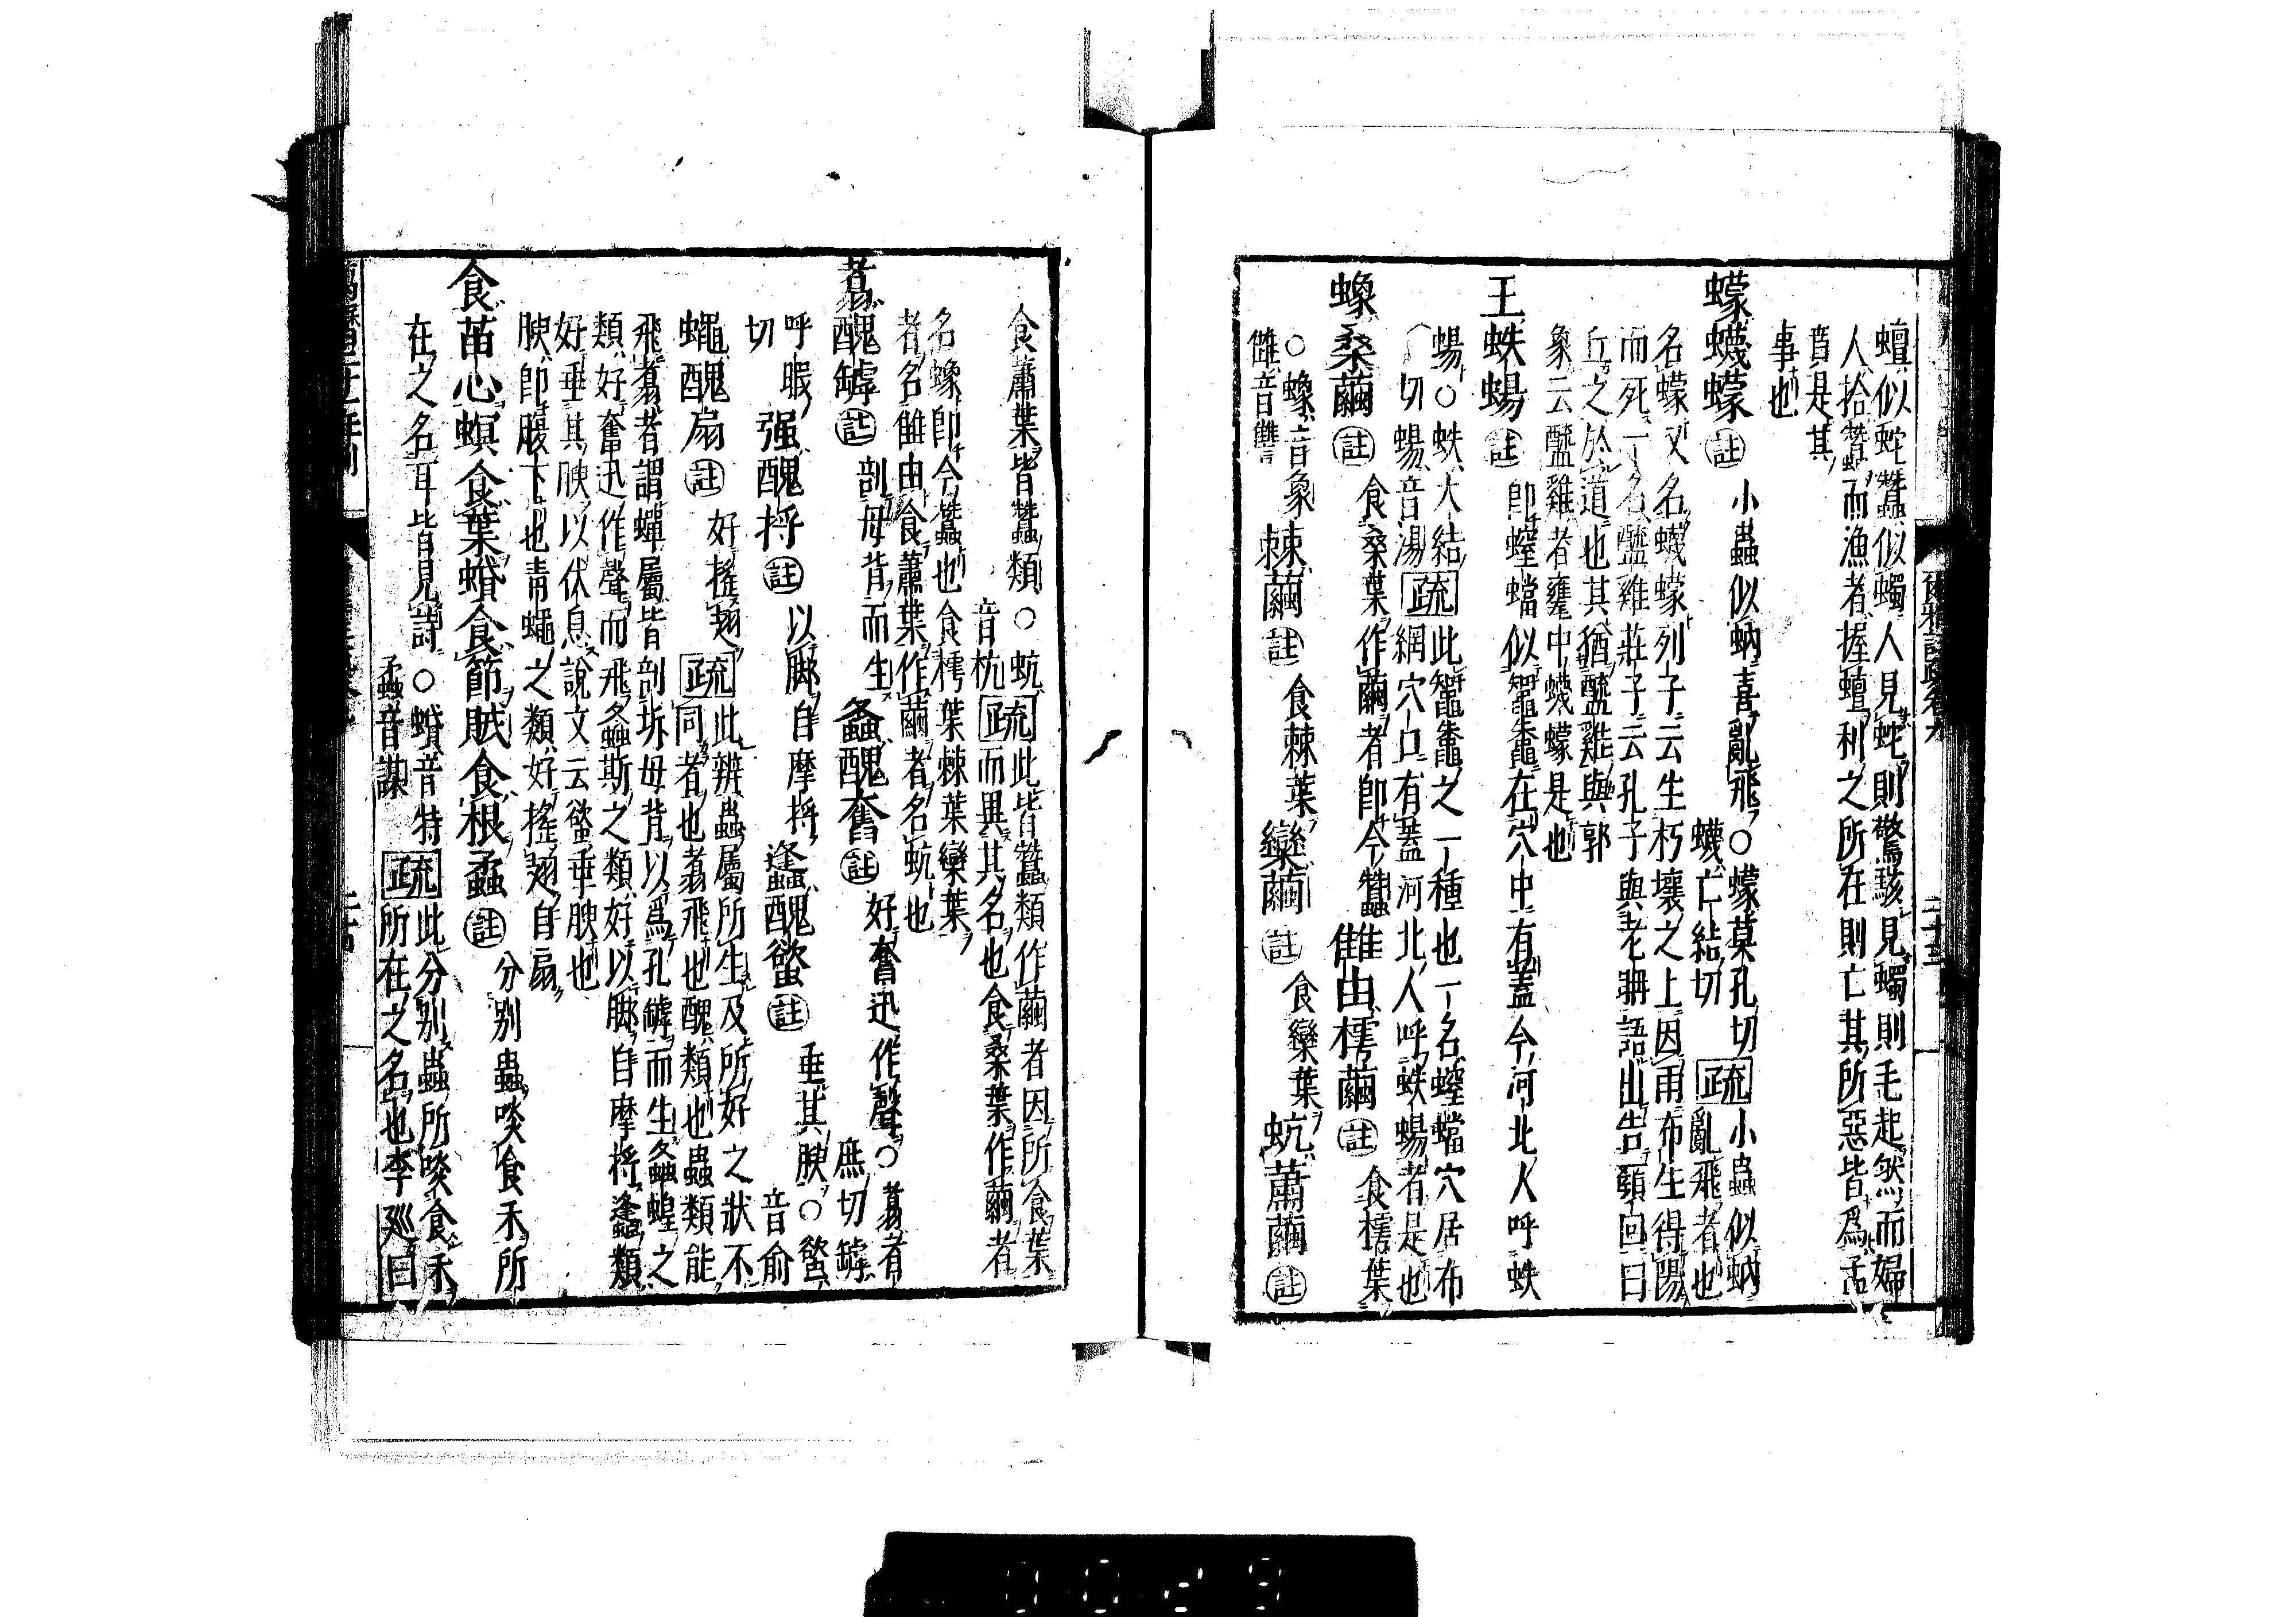 鱣似蛇蠶似蠋人見蛇則驚駭見蠋則毛起然而婦
人拾蠶而漁者握鱣利之所在則亡其所惡皆爲孟
賁是其
事也
蠓蠛蠓註小蟲似蚋喜亂飛○蠓莫孔切
蠛亡結切疏小蟲似蚋
亂飛者也
名蠓又名蠛蠓列子云生朽壤之上因雨而生得陽
而死一名醯雞莊子云孔子與老聃語出告顏回曰
丘之於道也其猶醯雞與郭
象云醯雞者甕中蠛蠓是也
王蛈蝪註即螲蟷似鼅鼄在穴中有蓋今河北人呼蛈
蝪○蛈大結
切蝪音湯疏此鼅鼄之一種也一名螲蟷穴居布
網穴口有蓋河北人呼蛈蝪者是也
蟓桑繭註食桑葉作繭者即今蠶雔由樗繭註食樗葉
○蟓音象
雔音讐
棘繭註食棘葉欒繭註食欒葉蚢蕭繭註
食蕭葉皆蠶類○蚢
音杭疏此皆蠶類作繭者因所食葉
而異其名也食桑葉作繭者
名蟓即今蠶也食樗葉棘葉欒葉
者名雔由食蕭葉作繭者名蚢也
翥醜罅註剖母背而生螽醜奮註好奮迅作聲○翥者
庶切罅
呼暇
切
强醜捋註以脚自摩捋蠭醜螸註垂其腴○螸
音俞
蠅醜扇註好搖翅疏此辨蟲屬所生及所好之狀不
同者也翥飛也醜類也蟲類能
飛翥者謂蟬屬皆剖坼母背以爲孔罅而生螽蝗之
類好奮迅作聲而飛螽斯之類好以脚自摩捋蠭類
好垂其腴以休息說文云螸垂腴也
腴即腹下也靑蠅之類好搖翅自扇
食苗心螟食葉蟘食節賊食根蟊註分别蟲啖食禾所
在之名耳皆見詩○蟘音特
蟊音謀疏此分别蟲所啖食禾
所在之名也李廵曰